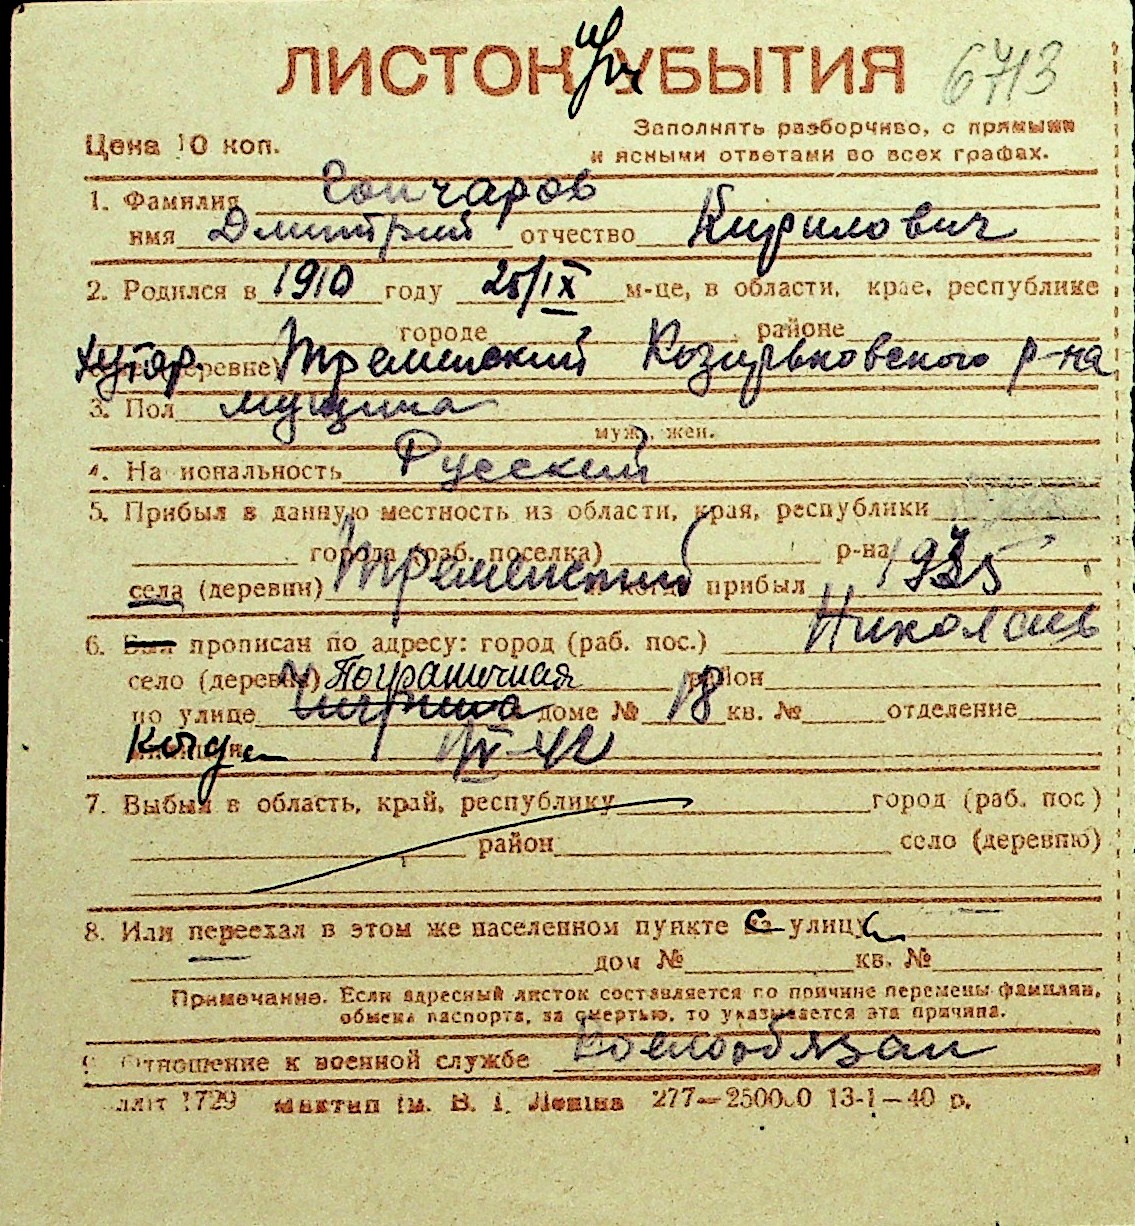 ЛИСТОК УБЫТИЯ 6713
Заполнять разборчиво, с прямыми
Цена 10 коп.
и ясными ответами во всех графах.
1. Фамилия Гончаров
имя Дмитрий отчество Кирилович
2. Родился в 1910 году 25/IX м-це, в области, крае, республике
городе районе
хутор. деревне) Тременский Козирьковского р-на
3. Пол мущина
муж., жен.
4. На иональность Русский
5. Прибыл в данную местность из области, края, республики
города (раб. поселка) р-на
села (деревни) Тременский и когда прибыл 1935
6. Был прописан по адресу: город (раб. пос.) Николаев
село (деревня) Пограничная район
по улице доме № 18 кв. № отделение
Когда IV-42
7. Выбыл в область, край, республику город (раб. пос)
район село (деревню)
8. Или переехал в этом же населенном пункте с улицы
дом № кв. №
Примечание. Если адресный листок составляется по причине перемены фамилии,
обмена паспорта, за смертью, то указывается эта причина.
Отношение к военной службе Военообязан
1729 ім. В. І. Леніна 277—250000 13-1—40 р.